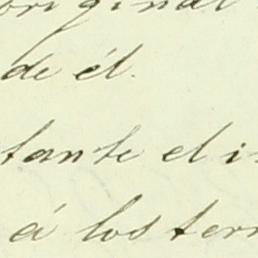 original
de él.
tante el i
á los terr